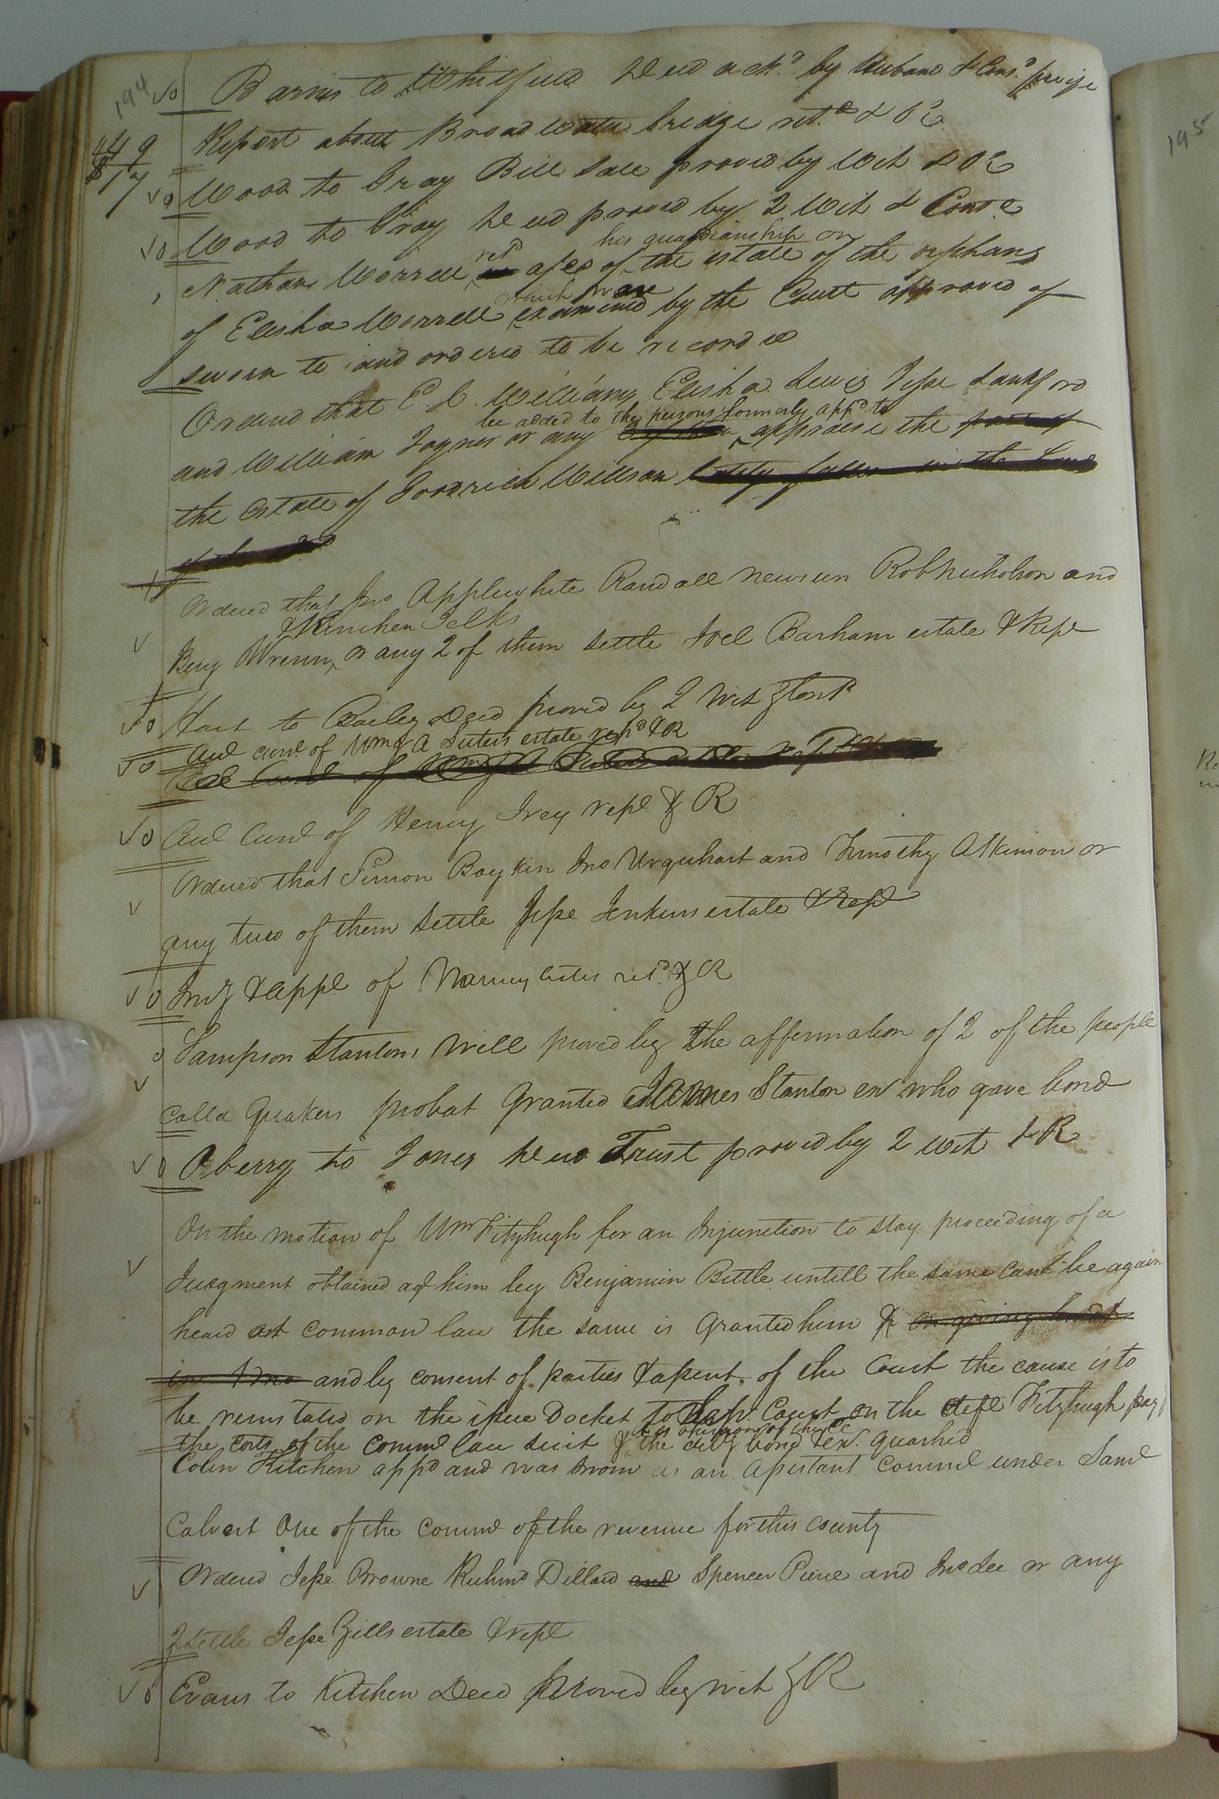 194
Barns to Whitfield Deed ackd by husband & Cons privy
449
17
Report about Broadwater bridge retd & OR
Wood to Gray Bill Sale proved by Wit & OR
Wood to Gray Deed proved by 2 Wit & Contd
his guardianship on
Nathans Worrell retd a/cs of the estate of the orphans
which were
of Elisha Worrell examined by the Court approved of
sworn to and ordered to be recorded
Ordered that E C Williams Elisha Lewis Jesse Lankford
be added to the persons formerly appd to
and William Joyner or any appraise the
the Estate of Goodrich Willson
Ordered that Jno Applewhite Randall Newsum Rob Nicholson and
& Kinchen Jelks
Benj Wrenn or any 2 of them settle Joel Barham estate & Rept
Hart to Bailey Deed proved by 2 Wit & Contd
Aud curd of Wm A Suters estate repd & R
Aud Curd of Henry Ivey rept & R
Ordered that Simon Boykin Jno Urquhart and Timothy Atkinson or
any two of them settle Jesse Jenkins estate & Rept
Inv & appt of Nancy retd & R
Sampson Stantons Will proved by the affirmation of 2 of the people
Calld Quakers probat Granted James Stanton exr who gave bond
Oberry to Jones Deed Trust proved by 2 wit & R
On the motion of Wm Fitzhugh for an Injunction to stay proceeding of a
Judgment obtained agt him by Benjamin Bittle untill the same cant be again
heard at common law the same is Granted him & on giving
and by consent of parties & assent of the Court the cause is to
be reinstated on the issue Docket to Sepr Court on the deft Fitzhugh pay
the costs of the comml law suit & the dely bond & ex quashed
Colin Kitchen appd and was sworn as an assistant Comml under Saml
Calvert One of the Comml of the revenue for this County
Ordered Jesse Browne Richmd Dillard and Spencer Pierce and Jno Lee or any
2 settle Jesse Gills estate & rept
Evans to Kitchen Deed proved by wit & R
195